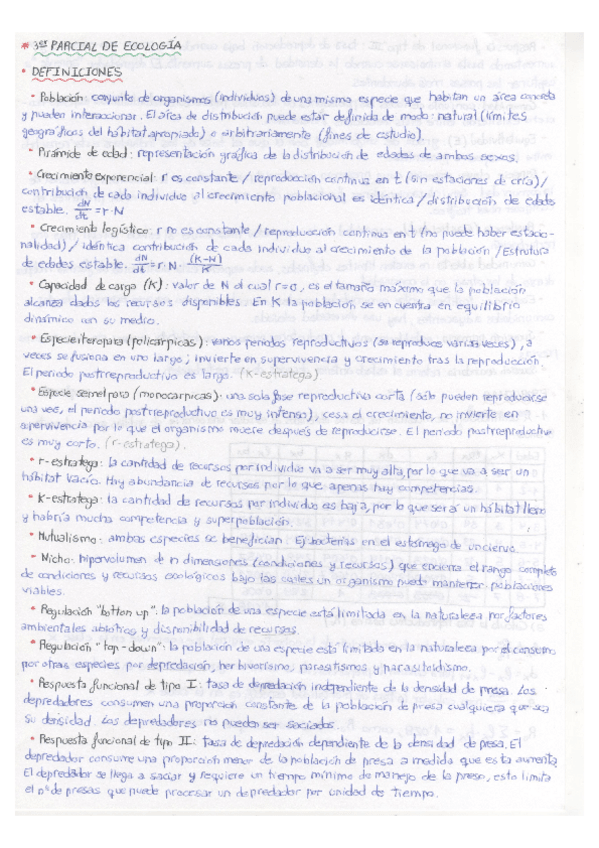 * 3er PARCIAL DE ECOLOGÍA
• DEFINICIONES
• Población: conjunto de organismos (individuos) de una misma especie que habitan un área concreta
y pueden interaccionar. El área de distribución puede estar definida de modo: natural (límites
geográficos del hábitat apropiado) o arbitrariamente (fines de estudio).
• Pirámide de edad: representación gráfica de la distribución de edades de ambos sexos.
• Crecimiento exponencial: r es constante / reproducción continua en t (sin estaciones de cría) /
contribución de cada individuo al crecimiento poblacional es idéntica / distribución de edades
estable. dN/dt = r·N
• Crecimiento logístico: r no es constante / reproducción continua en t (no puede haber estacio-
nalidad) / idéntica contribución de cada individuo al crecimiento de la población / Estructura
de edades estable. dN/dt = r·N·(K-N)/K
• Capacidad de carga (K): valor de N al cual r=0, es el tamaño máximo que la población
alcanza dados los recursos disponibles. En K la población se encuentra en equilibrio
dinámico con su medio.
• Especie iteropara (policárpicas): varios periodos reproductivos (se reproduce varias veces), a
veces se fusiona en uno largo; invierte en supervivencia y crecimiento tras la reproducción.
El periodo postrreproductivo es largo. (K-estratega)
• Especie semelpara (monocarpicas): una sola fase reproductiva corta (sólo pueden reproducirse
una vez, el periodo postrreproductivo es muy intenso), cesa el crecimiento, no invierte en
supervivencia por lo que el organismo muere después de reproducirse. El periodo postrreproductivo
es muy corto. (r-estratega).
• r-estratega: la cantidad de recursos por individuo va a ser muy alta, por lo que va a ser un
hábitat vacío. Hay abundancia de recursos por lo que apenas hay competencias.
• K-estratega: la cantidad de recursos por individuo es baja, por lo que será un hábitat lleno
y habría mucha competencia y superpoblación.
• Mutualismo: ambas especies se benefician. Ej: bacterias en el estómago de un ciervo.
• Nicho: hipervolumen de n dimensiones (condiciones y recursos) que encierra el rango completo
de condiciones y recursos ecológicos bajo las cuales un organismo puede mantener poblaciones
viables.
• Regulación "bottom up": la población de una especie está limitada en la naturaleza por factores
ambientales abióticos y disponibilidad de recursos.
• Regulación "top-down": la población de una especie está limitada en la naturaleza por el consumo
por otras especies por depredación, herbivorismo, parasitismos y parasitoidismo.
• Respuesta funcional de tipo I: tasa de depredación independiente de la densidad de presa. Los
depredadores consumen una proporción constante de la población de presa cualquiera que sea
su densidad. Los depredadores no pueden ser saciados.
• Respuesta funcional de tipo II: tasa de depredación dependiente de la densidad de presa. El
depredador consume una proporción menor de la población de presa a medida que esta aumenta.
El depredador se llega a saciar y requiere un tiempo mínimo de manejo de la presa, esto limita
el nº de presas que puede procesar un depredador por unidad de tiempo.